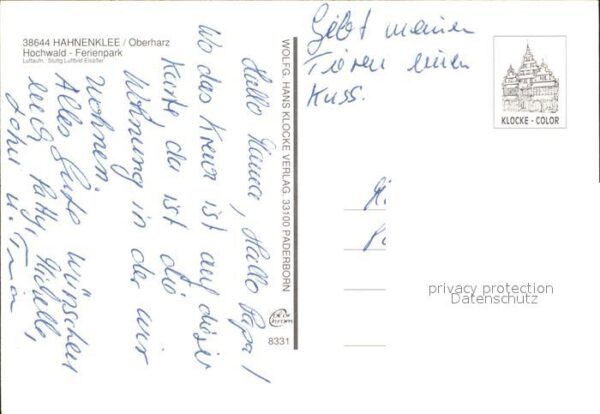 38644 HAHNENKLEE / Oberharz
Hochwald - Ferienpark
Luftaufn. Stuttg Luftbild Elsäßer
Hallo Mama, Hallo Papa!
Wo das Kreuz ist auf dieser
Karte da ist die
Wohnung in der wir
wohnen.
Alles Gute wünschen
euch Patty, Michelle,
John u.
WOLFG. HANS KLOCKE VERLAG, 33100 PADERBORN
8331
Gebt meinen
Tieren einen
Kuss.
KLOCKE - COLOR
privacy protection
Datenschutz